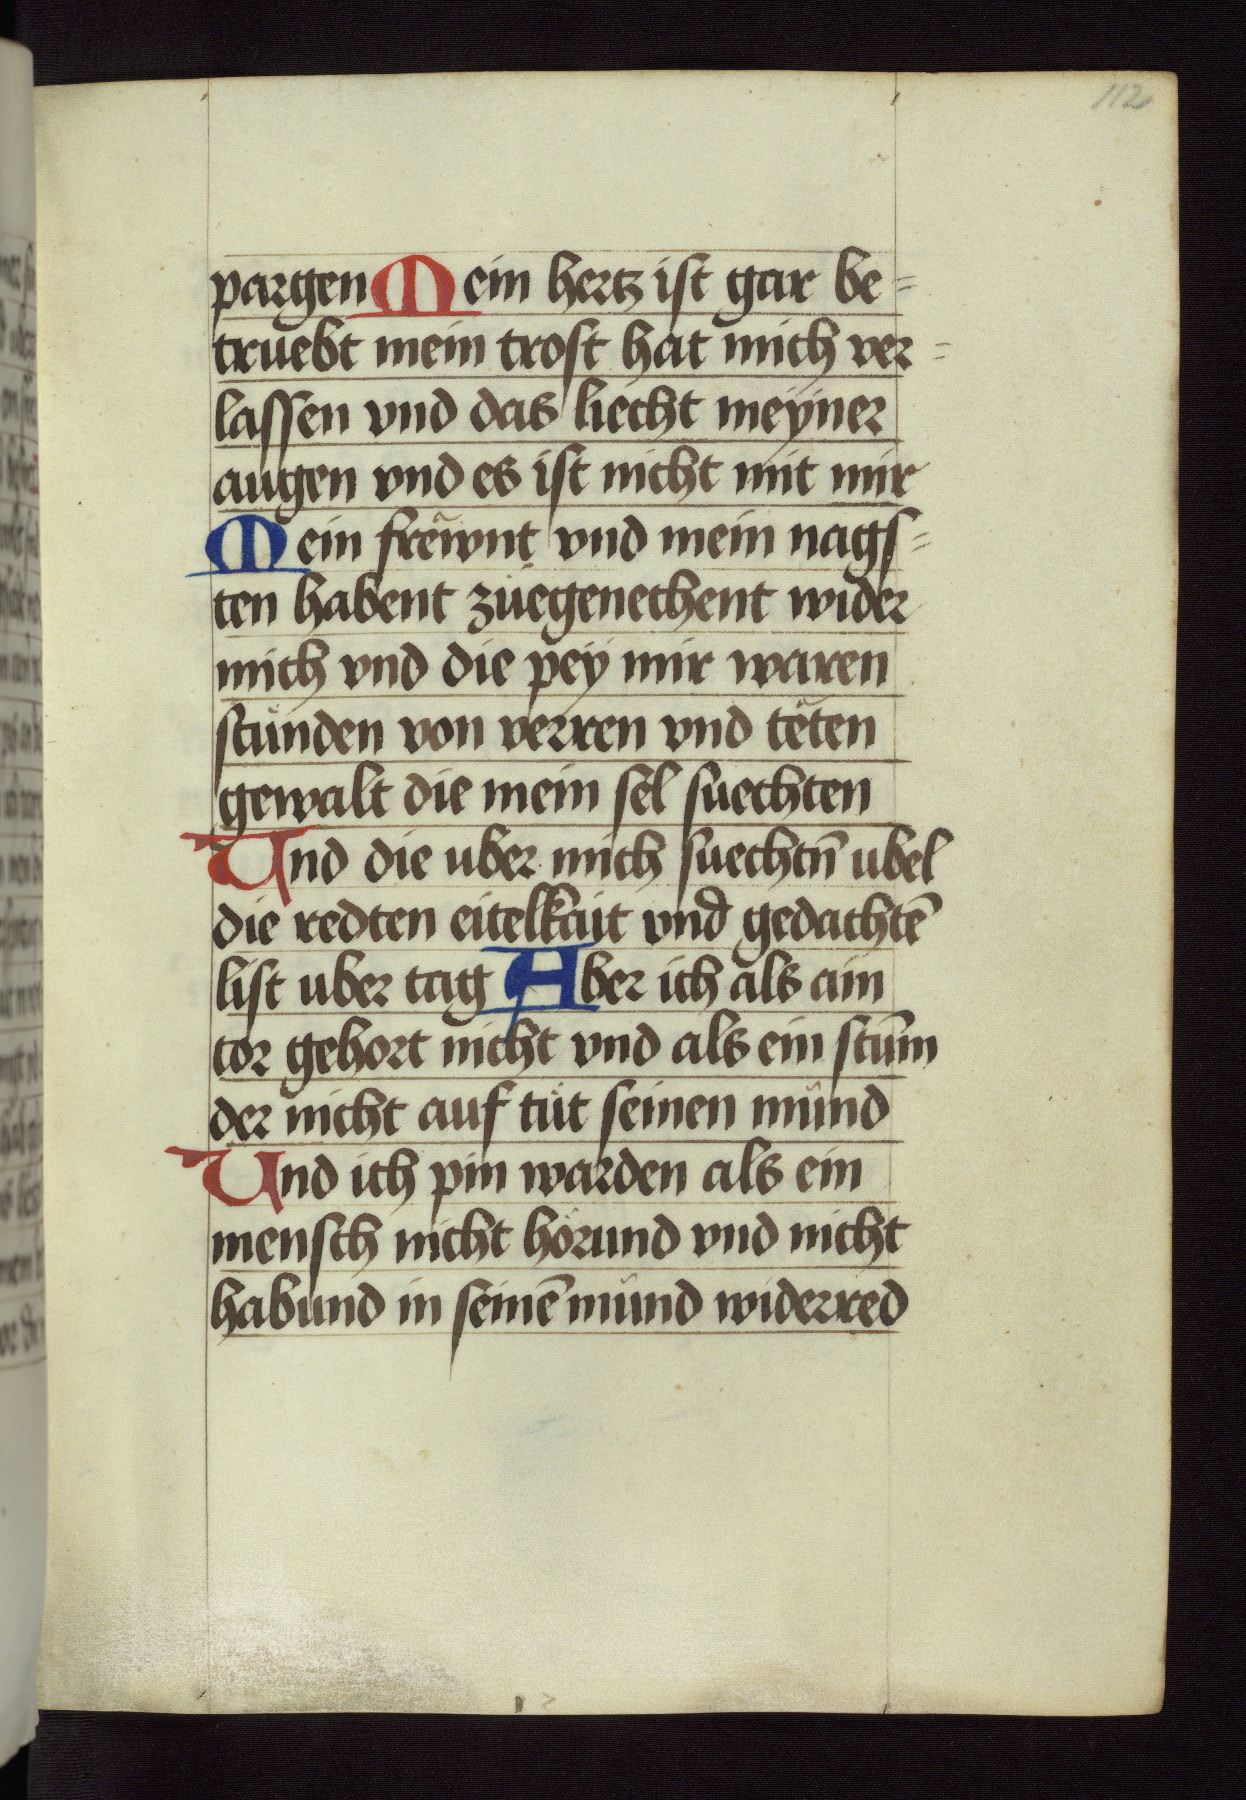 112
pargen Mein hertz ist gar be=
truebt mein trost hat mich ver=
lassen vnd das liecht meyner
augen vnd es ist nicht mit mir
Mein frewnt vnd mein nags=
ten habent zuegenechent wider
mich vnd die pey mir waren
stunden von verren vnd teten
gewalt die mein sel suechten
Und die uber mich suechtn̄ ubel
die redten eitelkait vnd gedachtē
list uber tag Aber ich als ain
tor gehort nicht vnd als ein stum̄
der nicht auf tut seinen mund
Und ich pin warden als ein
mensch nicht hörund vnd nicht
habund in seinē mund widerred